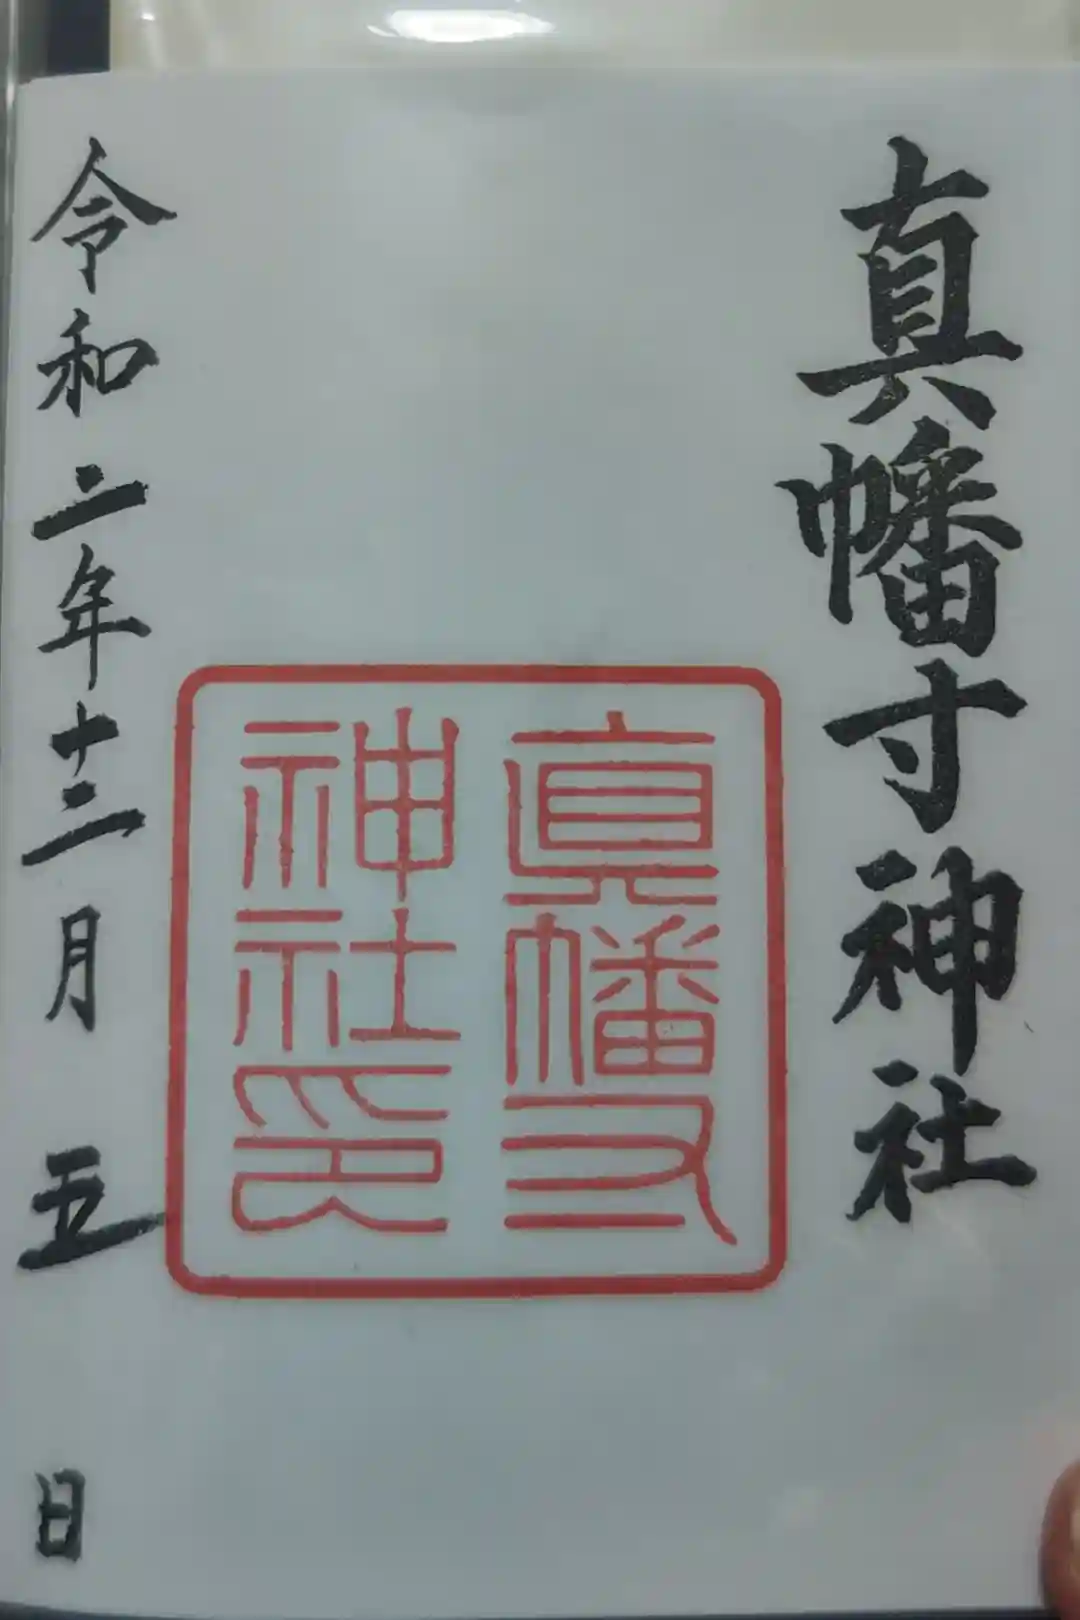 真幡寸神社
真幡寸
神社印
令和二年十二月五日